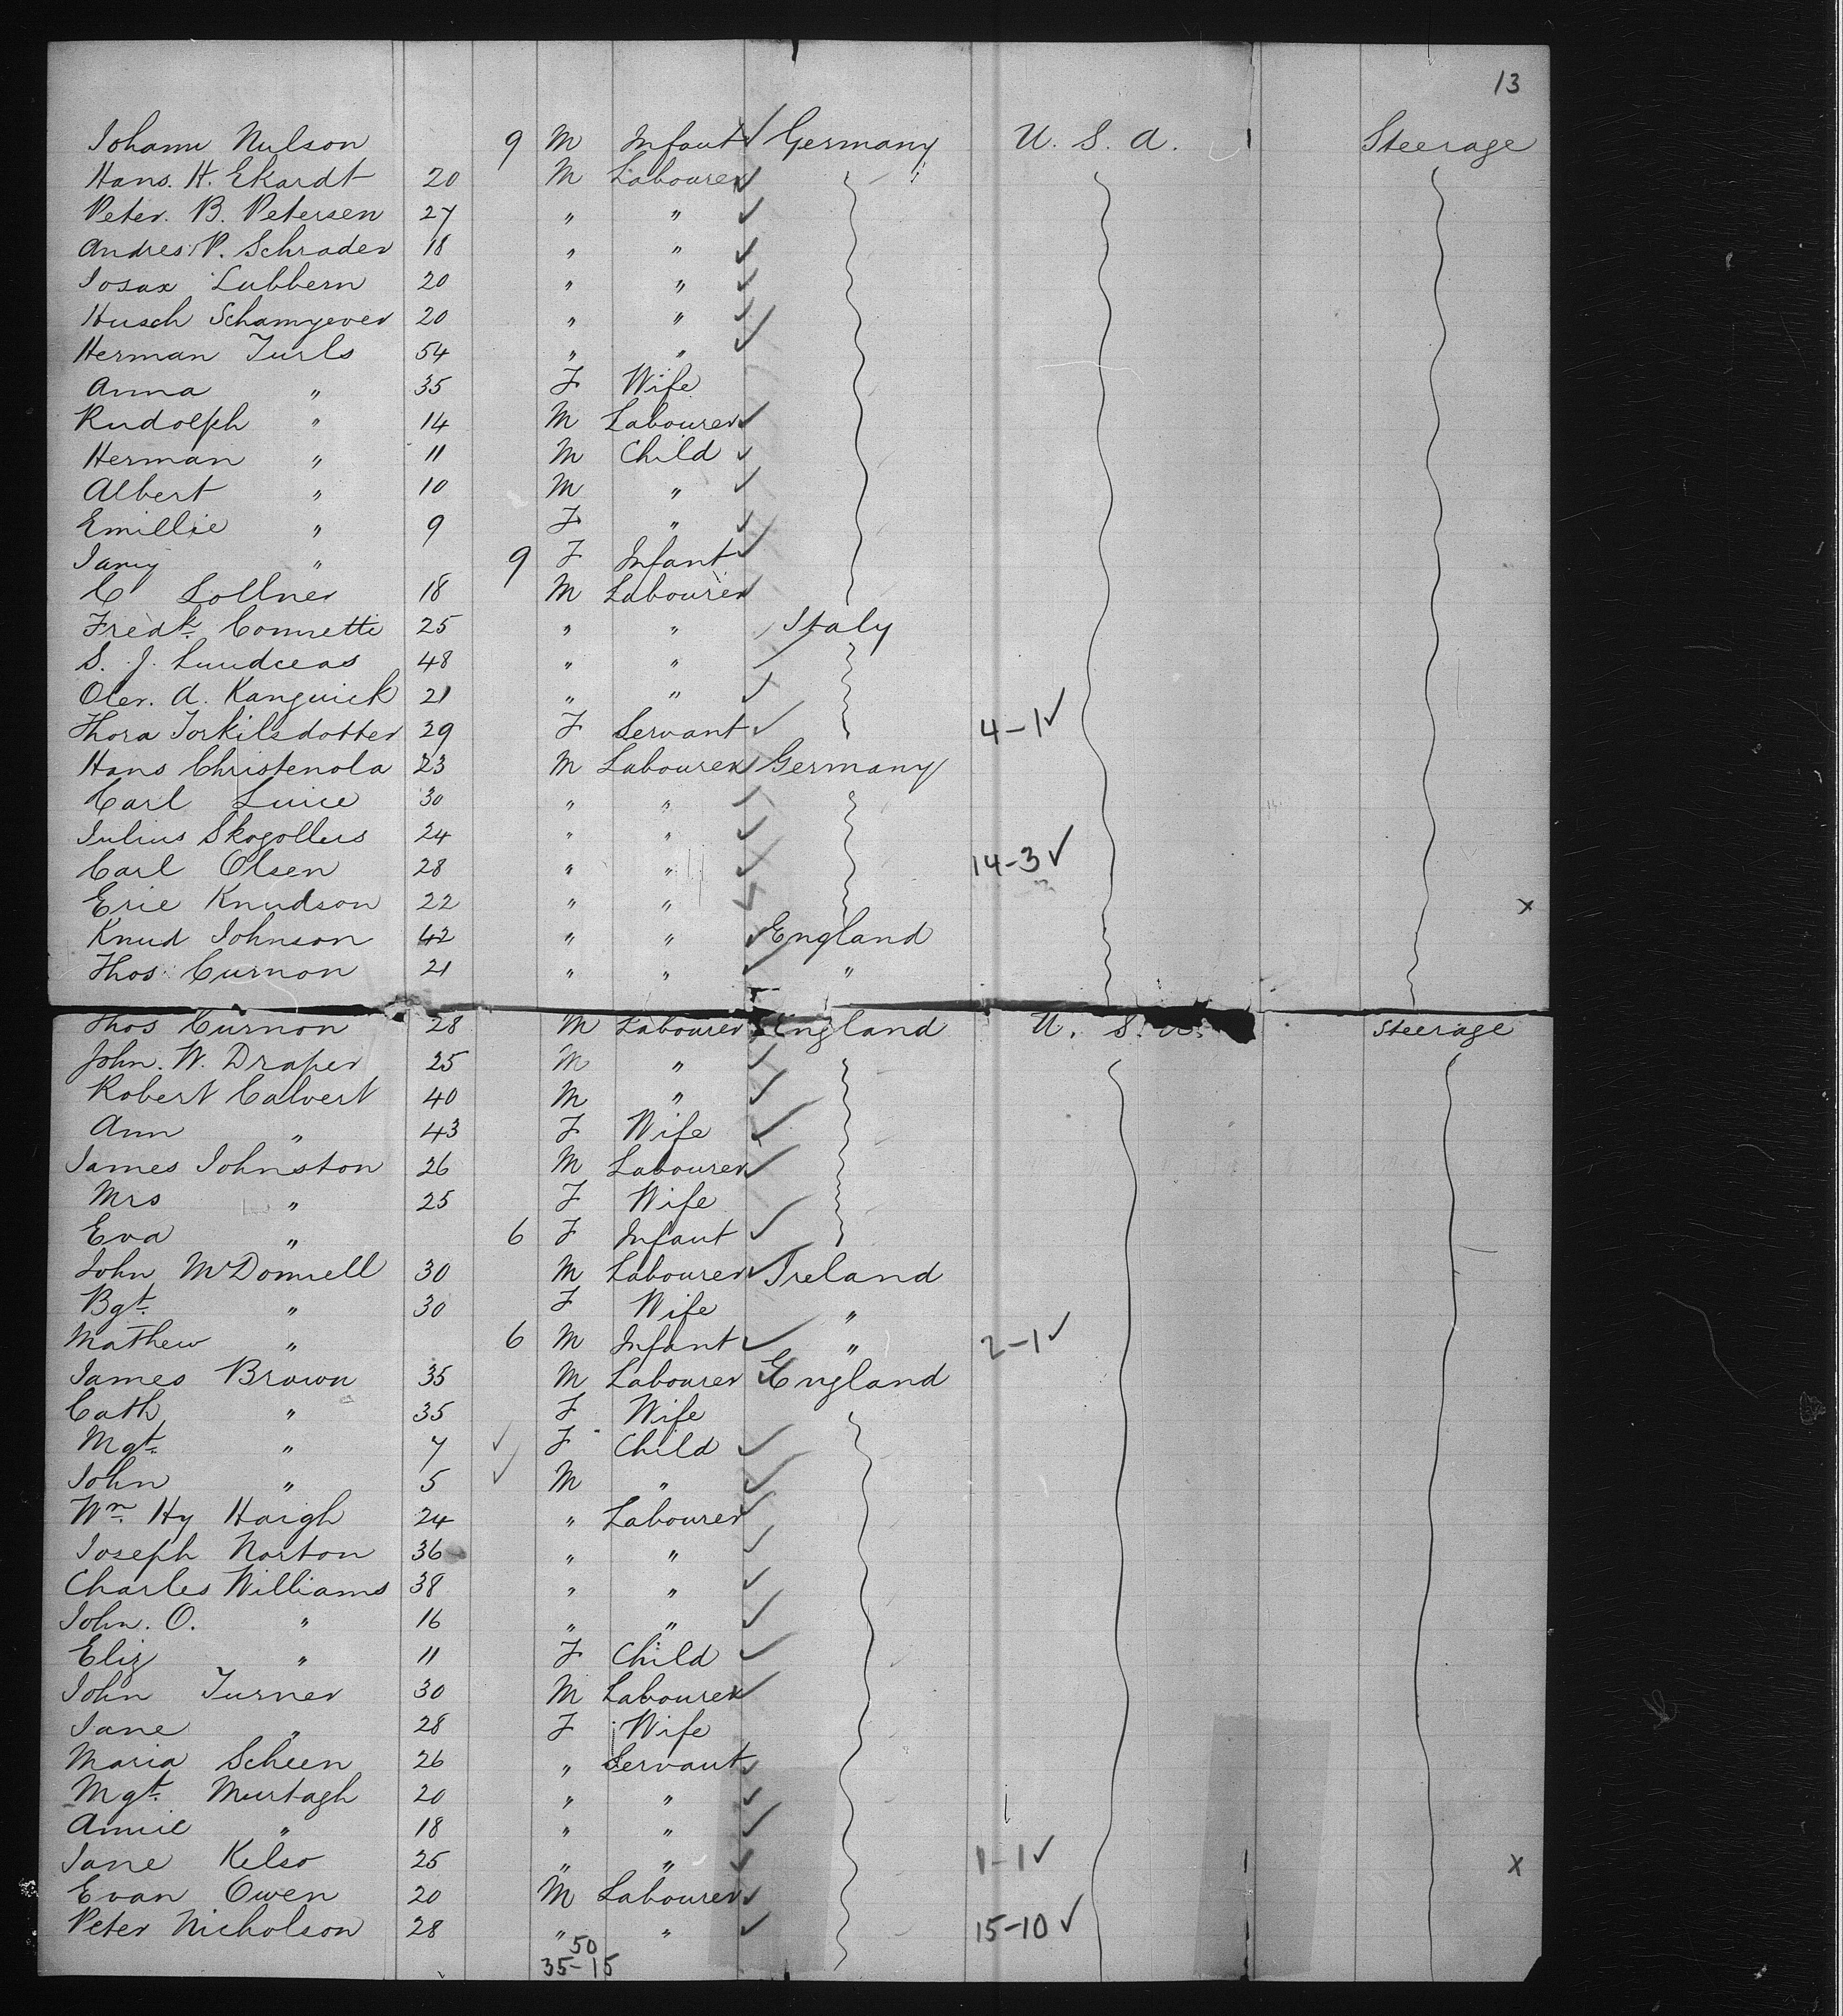 13
Johann Nulson 9 M Infant Germany U. S. A. Steerage
Hans. H. Ekardt 20 M Labourer
Peter. B. Petersen 27 " "
Andres P. Schrader 18 " "
Josax Lubbern 20 " "
Husch Schamyever 20 " "
Herman Turls 54 " "
Anna " 35 F Wife
Rudolph " 14 M Labourer
Herman " 11 M Child
Albert " 10 M "
Emillie " 9 F "
Jany " 9 F Infant
C Lollner 18 M Labourer
Fredk. Connetti 25 " " Italy
S. J. 48 " "
A. 21 " "
Thora Torkilsdotter 29 F Servant 4-1
Hans Christenola 23 M Labourer Germany
Carl 30 " "
Julius Skogollus 24 " "
Carl Olsen 28 " " 14-3
Eric Knudson 22 " " x
Knud Johnson 42 " " England
Thos. Curnon 21 " " "
Thos Curnon 28 M Labourer England U. S. A. Steerage
John. W. Draper 25 M "
Robert Calvert 40 M "
Ann " 43 F Wife
James Johnston 26 M Labourer
Mrs " 25 F Wife
Eva " 6 F Infant
John McDonnell 30 M Labourer Ireland
Bgt. " 30 F Wife "
Mathew " 6 M Infant " 2-1
James Brown 35 M Labourer England
Cath " 35 F Wife
Mgt. " 7 F Child
John " 5 M "
Wm. Hy Haigh 24 " Labourer
Joseph Norton 36 " "
Charles Williams 38 " "
John. O. " 16 " "
Eliz " 11 F Child
John Turner 30 M Labourer
Jane " 28 F Wife
Maria Scheen 26 " Servant
Mgt. Murtagh 20 " "
Annie " 18 " "
Jane Kelso 25 " " 1-1 x
Evan Owen 20 M Labourer
Peter Nicholson 28 " " 15-10
50
35-15